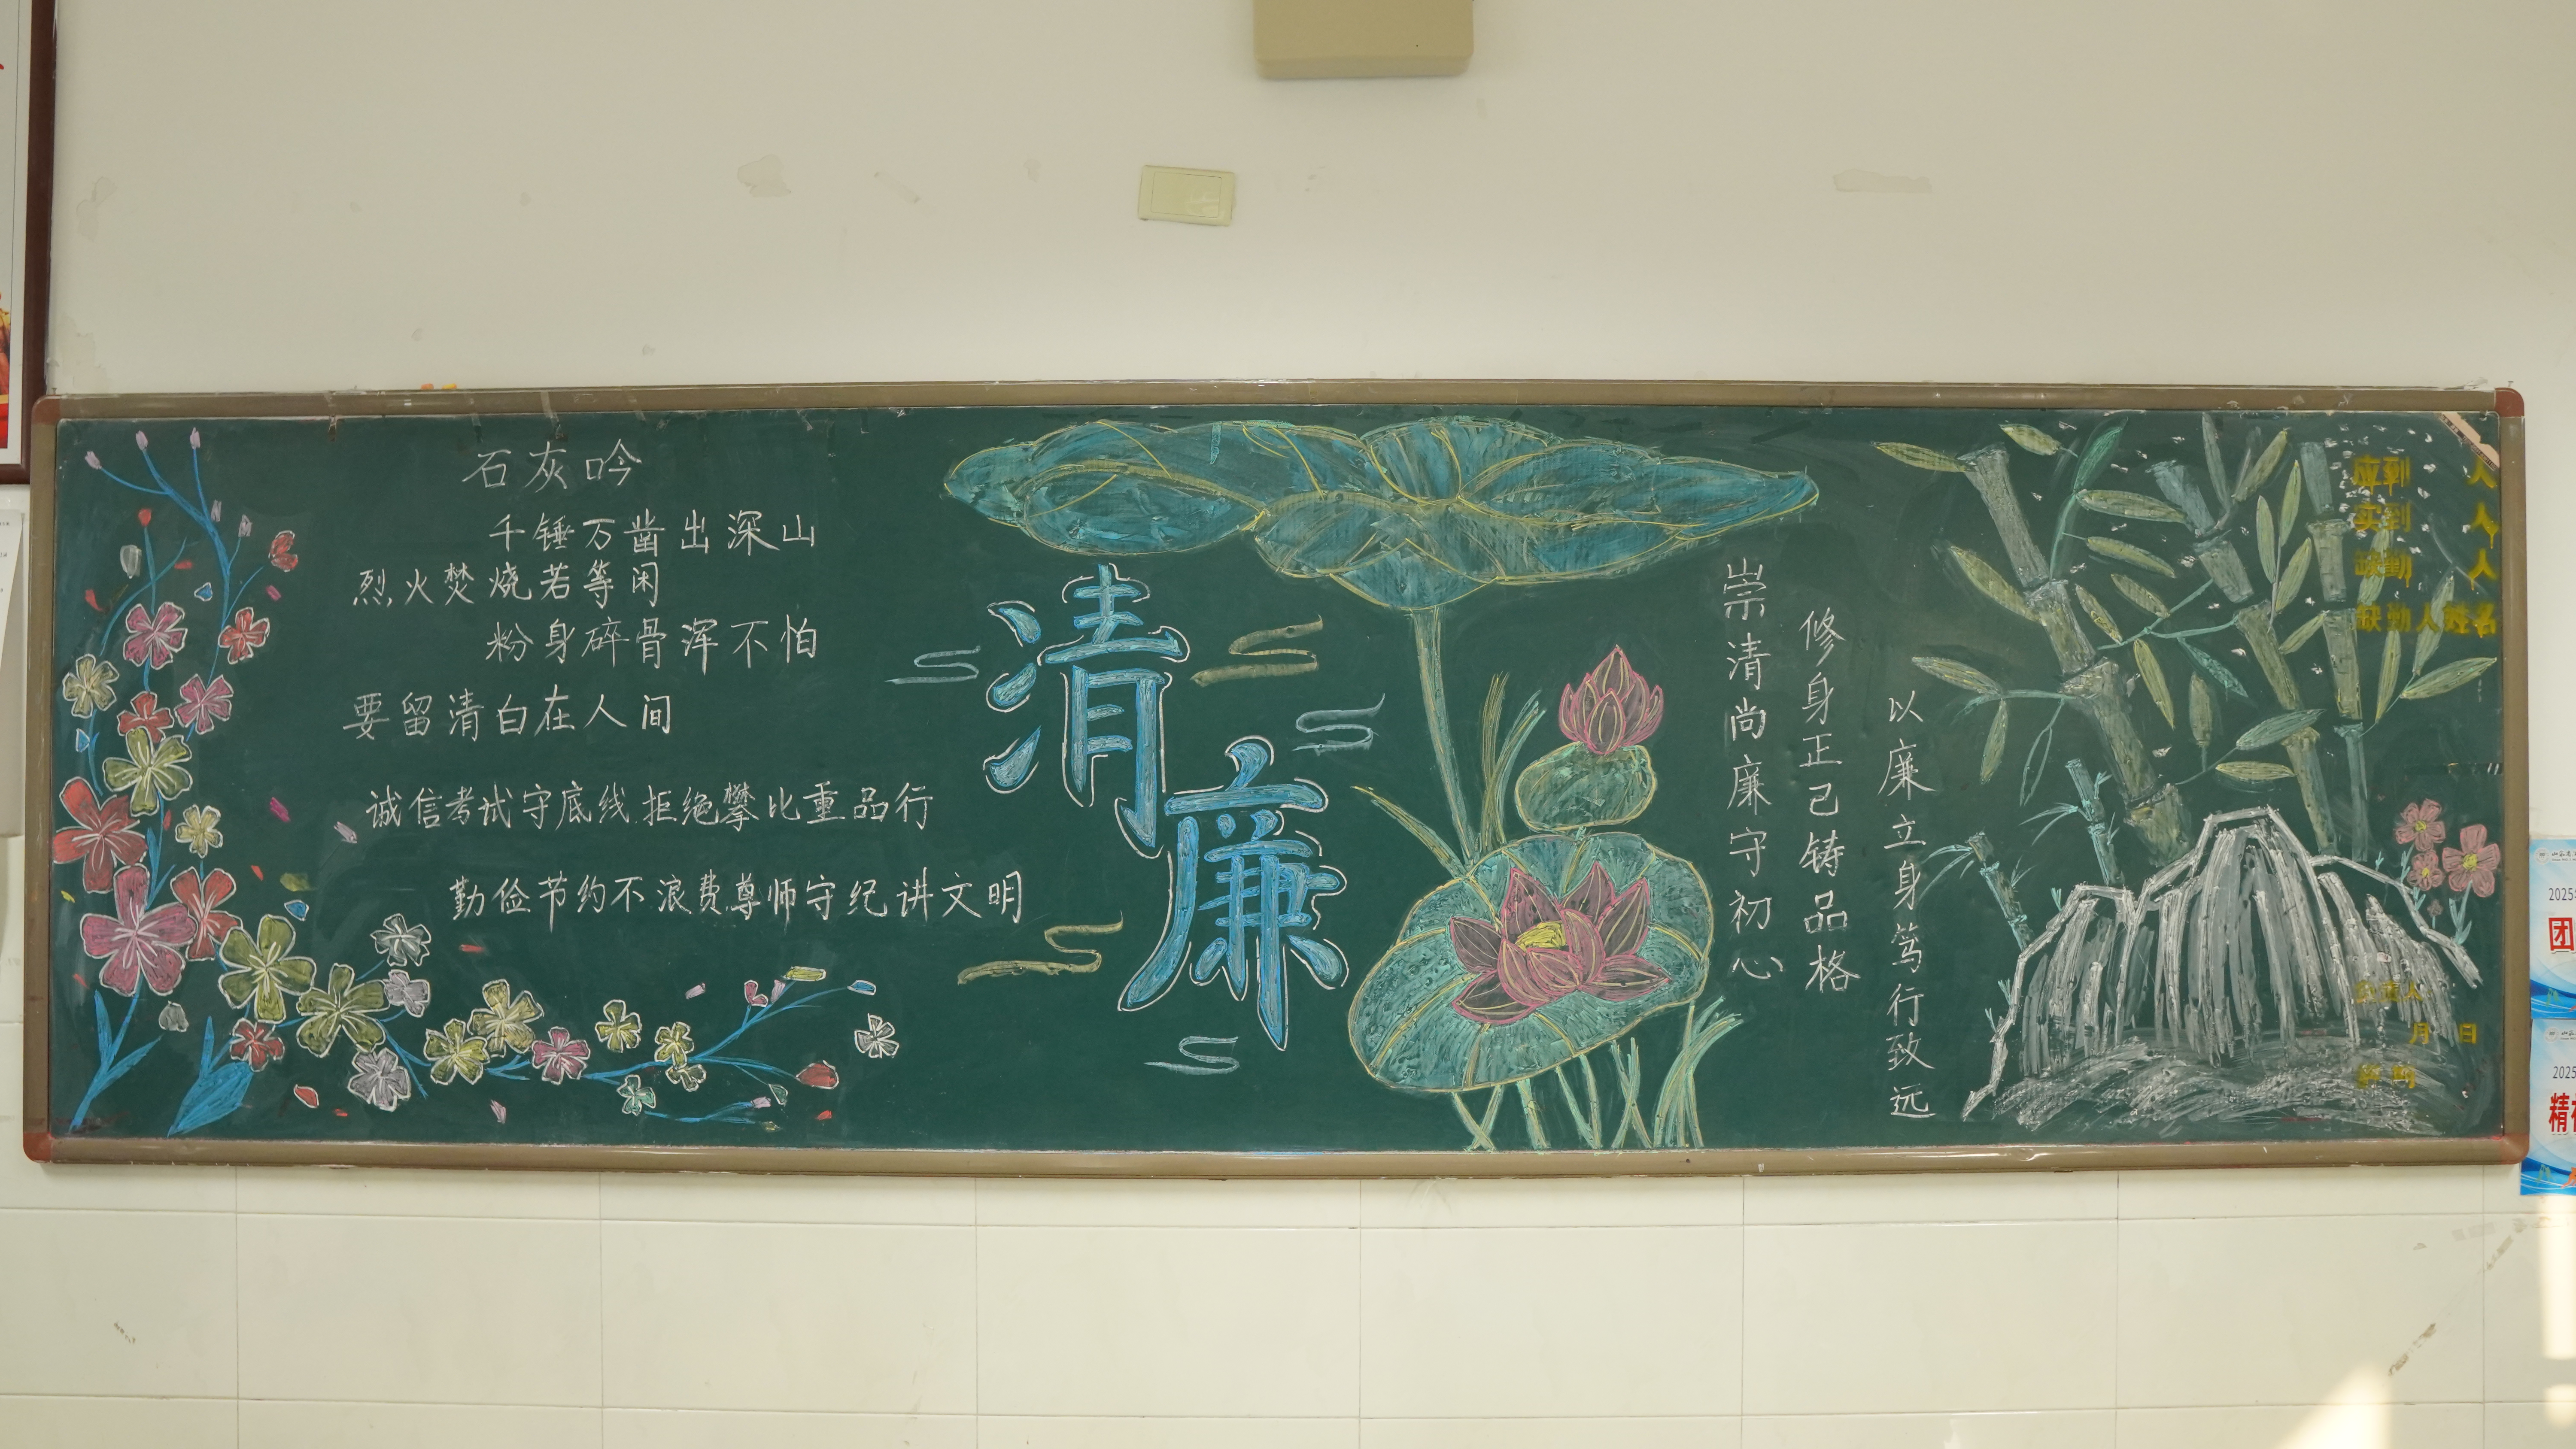 石灰吟
千锤万凿出深山
烈火焚烧若等闲
粉身碎骨浑不怕
要留清白在人间
诚信考试守底线 拒绝攀比重品行
勤俭节约不浪费 尊师守纪讲文明
清廉
崇清尚廉守初心
修身正己铸品格
以廉立身笃行致远
应到 人
实到 人
缺勤 人
缺勤人姓名
负责人
月 日
2025
团
2025
精